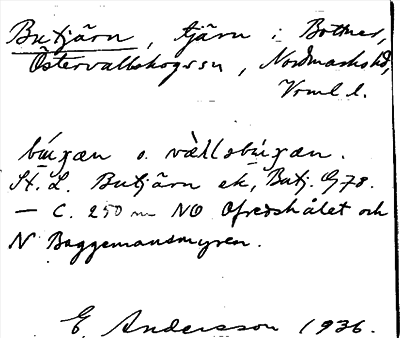 Butjärn, tjärn i Bottnen,
Östervallskogssn, Nordmarks hd,
Vrml l.
búxæn o. vàllsbúxæn.
St. L. Butjärn ek, Butj. G 78.
— C. 250 m NO Ofredshålet och
N Baggemansmyren.
E Andersson 1936.